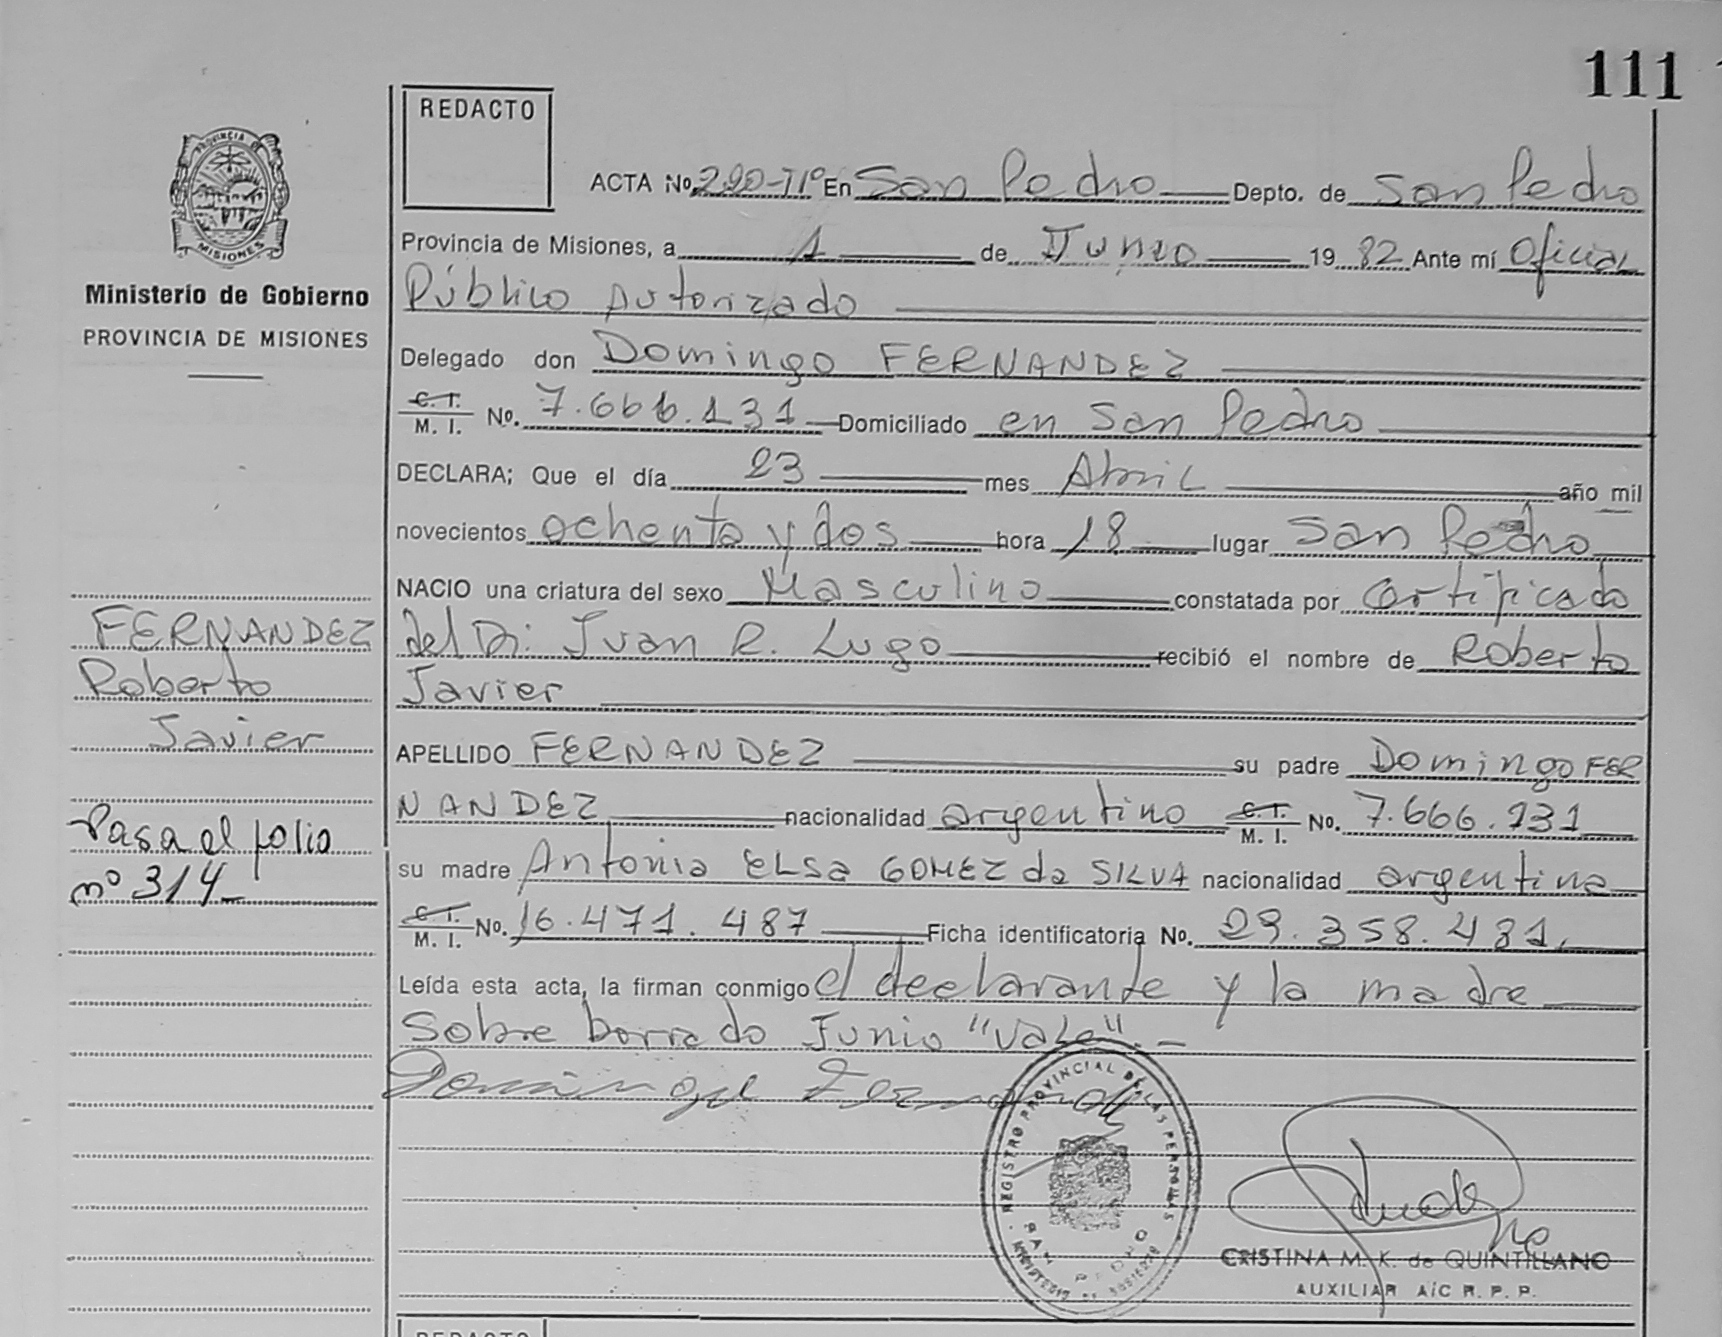 111
REDACTO
PROVINCIA DE
MISIONES
Ministerio de Gobierno
PROVINCIA DE MISIONES
ACTA No 290-II° En San Pedro Depto. de San Pedro
Provincia de Misiones, a 1 de Junio 19 82 Ante mí Oficial
Público Autorizado
Delegado don Domingo FERNANDEZ
C. T.
M. I. No. 7.666.131 Domiciliado en San Pedro
DECLARA; Que el día 23 mes Abril año mil
novecientos ochenta y dos hora 18 lugar San Pedro
NACIO una criatura del sexo Masculino constatada por Certificado
del Dr. Juan R. Lugo recibió el nombre de Roberto
Javier
APELLIDO FERNANDEZ su padre Domingo FER
NANDEZ nacionalidad argentino C. T. M. I. No. 7.666.131
su madre Antonia ELSA GOMEZ da SILVA nacionalidad argentina
C. T. M. I. No. 16.471.487 Ficha identificatoria No. 29.358.481.
Leída esta acta, la firman conmigo el declarante y la madre
Sobre borrado Junio "Vale".-
FERNANDEZ
Roberto
Javier
Pasa el folio
nº 314-
Domingo
REGISTRO PROVINCIAL DE LAS PERSONAS
SAN PEDRO
CRISTINA M. K. de QUINTILLANO
AUXILIAR A/C R. P. P.
REDACTO